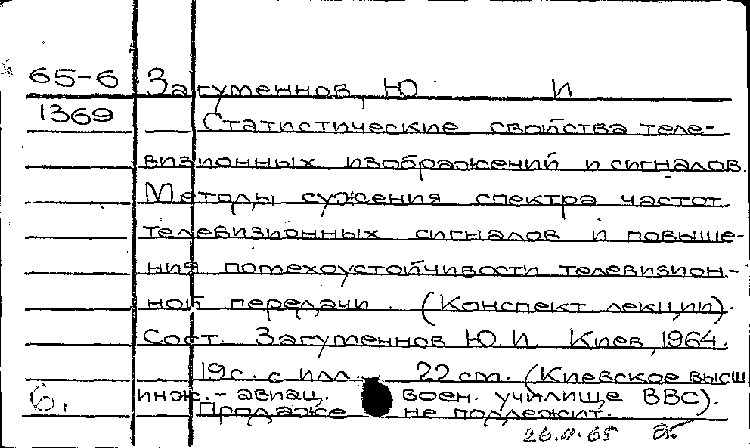 65-6 Загуменнов, Ю И
1369 Статистические свойства теле-
визионных изображений и сигналов.
Методы сужения спектра частот
телевизионных сигналов и повыше-
ния помехоустойчивости телевизион-
ной передачи. (Конспект лекции).
Сост. Загуменнов Ю. И. Киев, 1964.
19с. с илл. 22 см. (Киевское высш
инж.-авиац. воен. училище ВВС).
б. Продаже не подлежит.